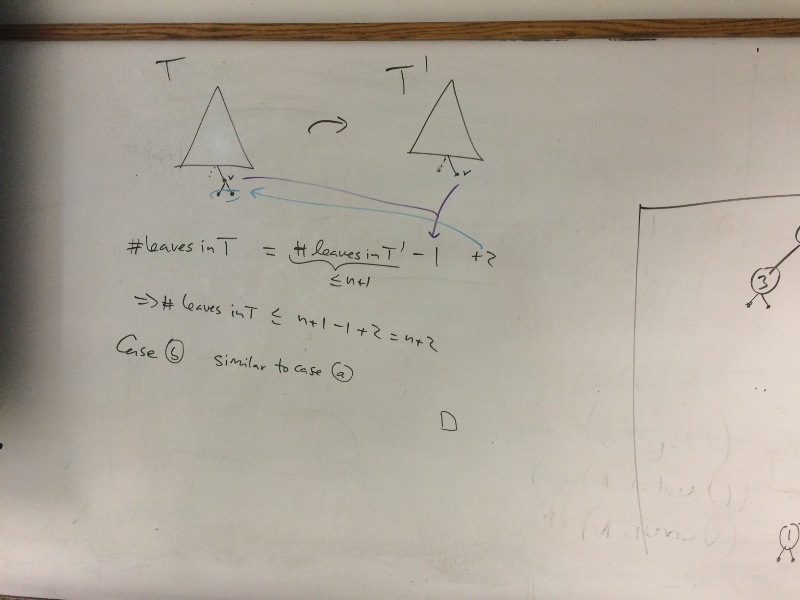 T T'
v v
#leaves in T = # leaves in T' - 1 + 2
≤ n+1
⇒ # leaves in T ≤ n+1 -1 +2 = n+2
Case ⓑ similar to case ⓐ
□
3
1